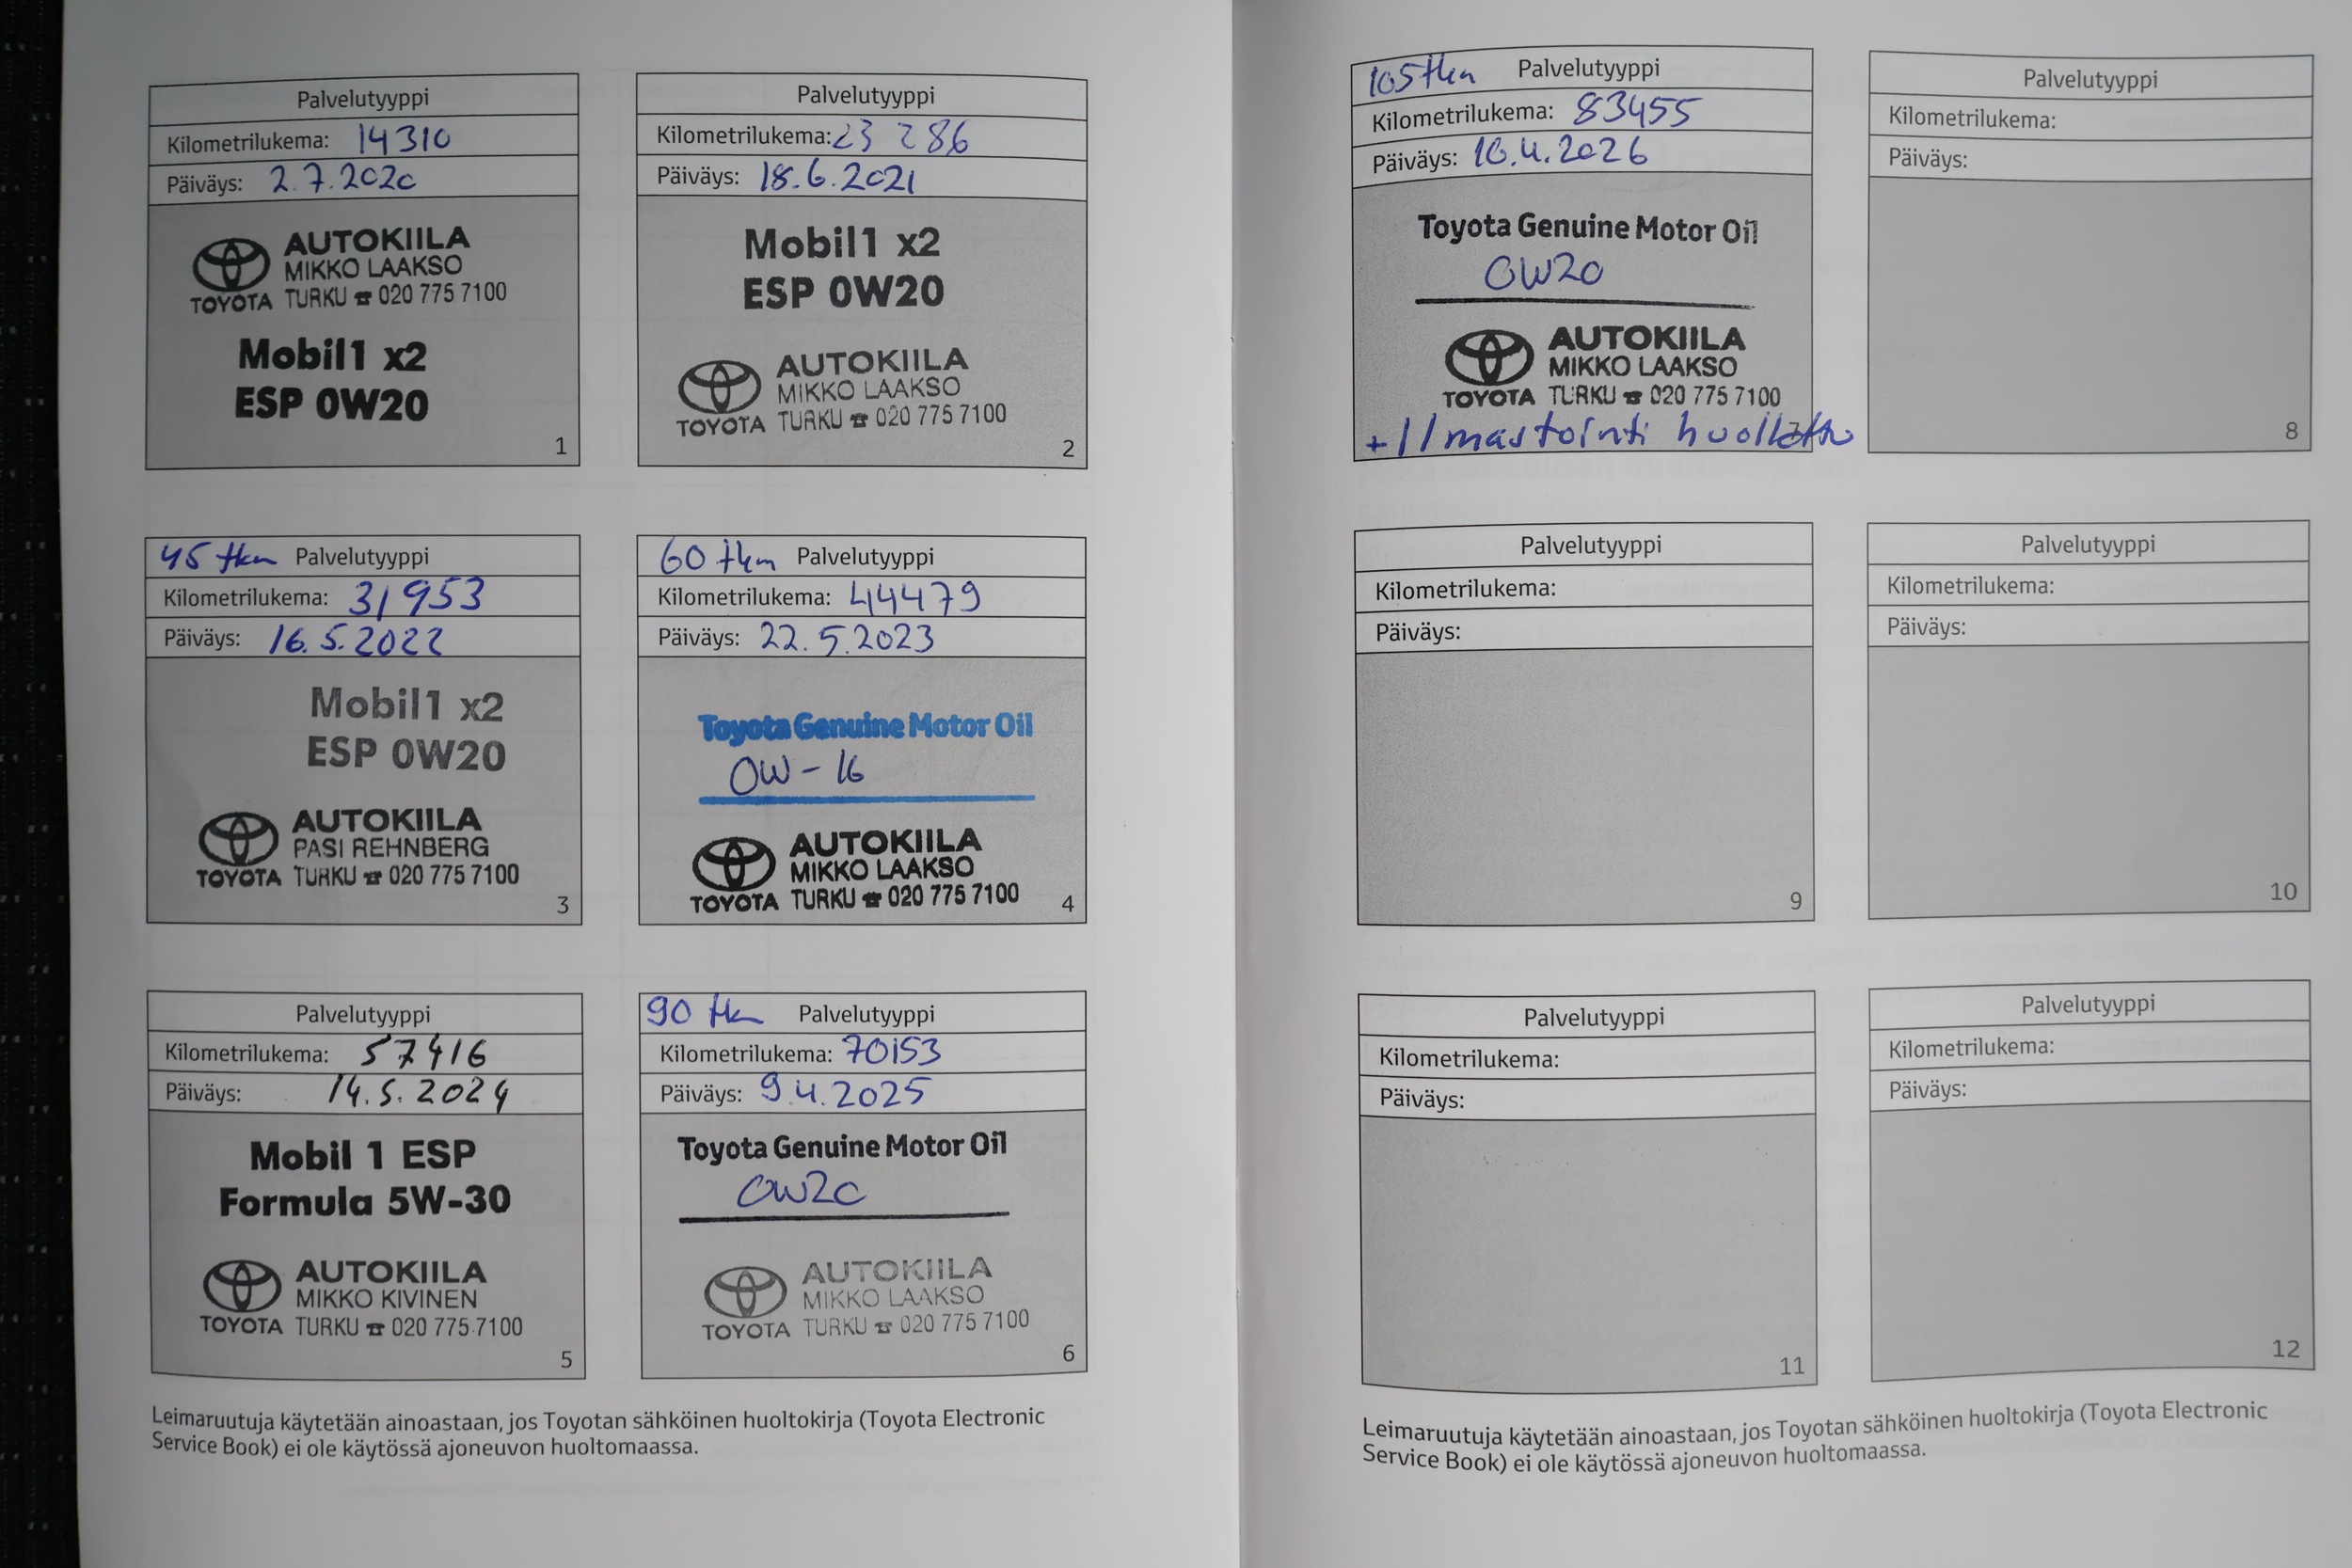 Palvelutyyppi
Kilometrilukema: 14310
Päiväys: 2.7.2020
AUTOKIILA
MIKKO LAAKSO
TOYOTA TURKU ☎ 020 775 7100
Mobil1 x2
ESP 0W20
1
Palvelutyyppi
Kilometrilukema: 23 286
Päiväys: 18.6.2021
Mobil1 x2
ESP 0W20
AUTOKIILA
MIKKO LAAKSO
TOYOTA TURKU ☎ 020 775 7100
2
45 tkm Palvelutyyppi
Kilometrilukema: 31953
Päiväys: 16.5.2022
Mobil1 x2
ESP 0W20
AUTOKIILA
PASI REHNBERG
TOYOTA TURKU ☎ 020 775 7100
3
60 tkm Palvelutyyppi
Kilometrilukema: 44479
Päiväys: 22.5.2023
Toyota Genuine Motor Oil
0W-16
AUTOKIILA
MIKKO LAAKSO
TOYOTA TURKU ☎ 020 775 7100
4
Palvelutyyppi
Kilometrilukema: 57416
Päiväys: 14.5.2024
Mobil 1 ESP
Formula 5W-30
AUTOKIILA
MIKKO KIVINEN
TOYOTA TURKU ☎ 020 775 7100
5
90 tkm Palvelutyyppi
Kilometrilukema: 70153
Päiväys: 9.4.2025
Toyota Genuine Motor Oil
0W20
AUTOKIILA
MIKKO LAAKSO
TOYOTA TURKU ☎ 020 775 7100
6
Leimaruutuja käytetään ainoastaan, jos Toyotan sähköinen huoltokirja (Toyota Electronic
Service Book) ei ole käytössä ajoneuvon huoltomaassa.
105 tkm Palvelutyyppi
Kilometrilukema: 83455
Päiväys: 4.2026
Toyota Genuine Motor Oil
0W20
AUTOKIILA
MIKKO LAAKSO
TOYOTA TURKU ☎ 020 775 7100
+ Ilmastointi huollettu
7
Palvelutyyppi
Kilometrilukema:
Päiväys:
8
Palvelutyyppi
Kilometrilukema:
Päiväys:
9
Palvelutyyppi
Kilometrilukema:
Päiväys:
10
Palvelutyyppi
Kilometrilukema:
Päiväys:
11
Palvelutyyppi
Kilometrilukema:
Päiväys:
12
Leimaruutuja käytetään ainoastaan, jos Toyotan sähköinen huoltokirja (Toyota Electronic
Service Book) ei ole käytössä ajoneuvon huoltomaassa.